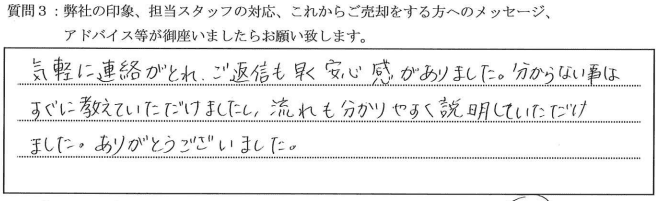 質問３：弊社の印象、担当スタッフの対応、これからご売却をする方へのメッセージ、
アドバイス等が御座いましたらお願い致します。
気軽に連絡がとれ、ご返信も早く安心感がありました。分からない事は
すぐに教えていただけましたし、流れも分かりやすく説明していただけ
ました。ありがとうございました。